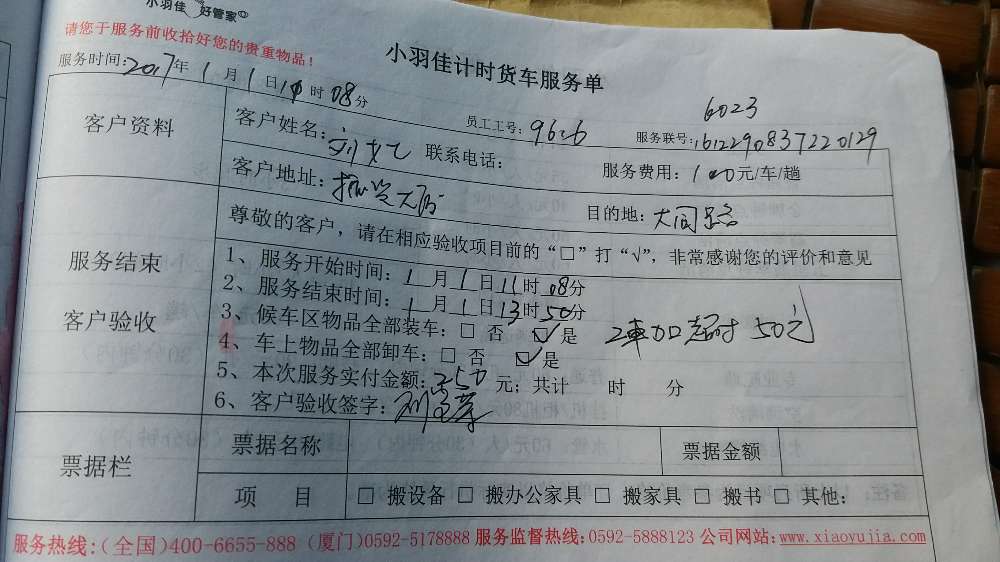 小羽佳 好管家
请您于服务前收拾好您的贵重物品！
小羽佳计时货车服务单
服务时间：2017年1月1日10时08分
6023
员工工号：9626
服务联号：161229083722 0129
客户资料
客户姓名：刘 联系电话：
服务费用：100元/车/趟
客户地址：振兴大厦
目的地：大同路
服务结束
客户验收
尊敬的客户，请在相应验收项目前的“□”打“√”，非常感谢您的评价和意见
1、服务开始时间：1月1日11时08分
2、服务结束时间：1月1日13时50分
3、候车区物品全部装车：□ 否 ☑是
2車加超时50元
4、车上物品全部卸车：□ 否 ☑是
5、本次服务实付金额：250元；共计 时 分
6、客户验收签字：刘
票据栏
票据名称
票据金额
项 目
□ 搬设备 □ 搬办公家具 □ 搬家具 □ 搬书 □ 其他：
服务热线：（全国）400-6655-888（厦门）0592-5178888 服务监督热线：0592-5888123 公司网站：www.xiaoyujia.com